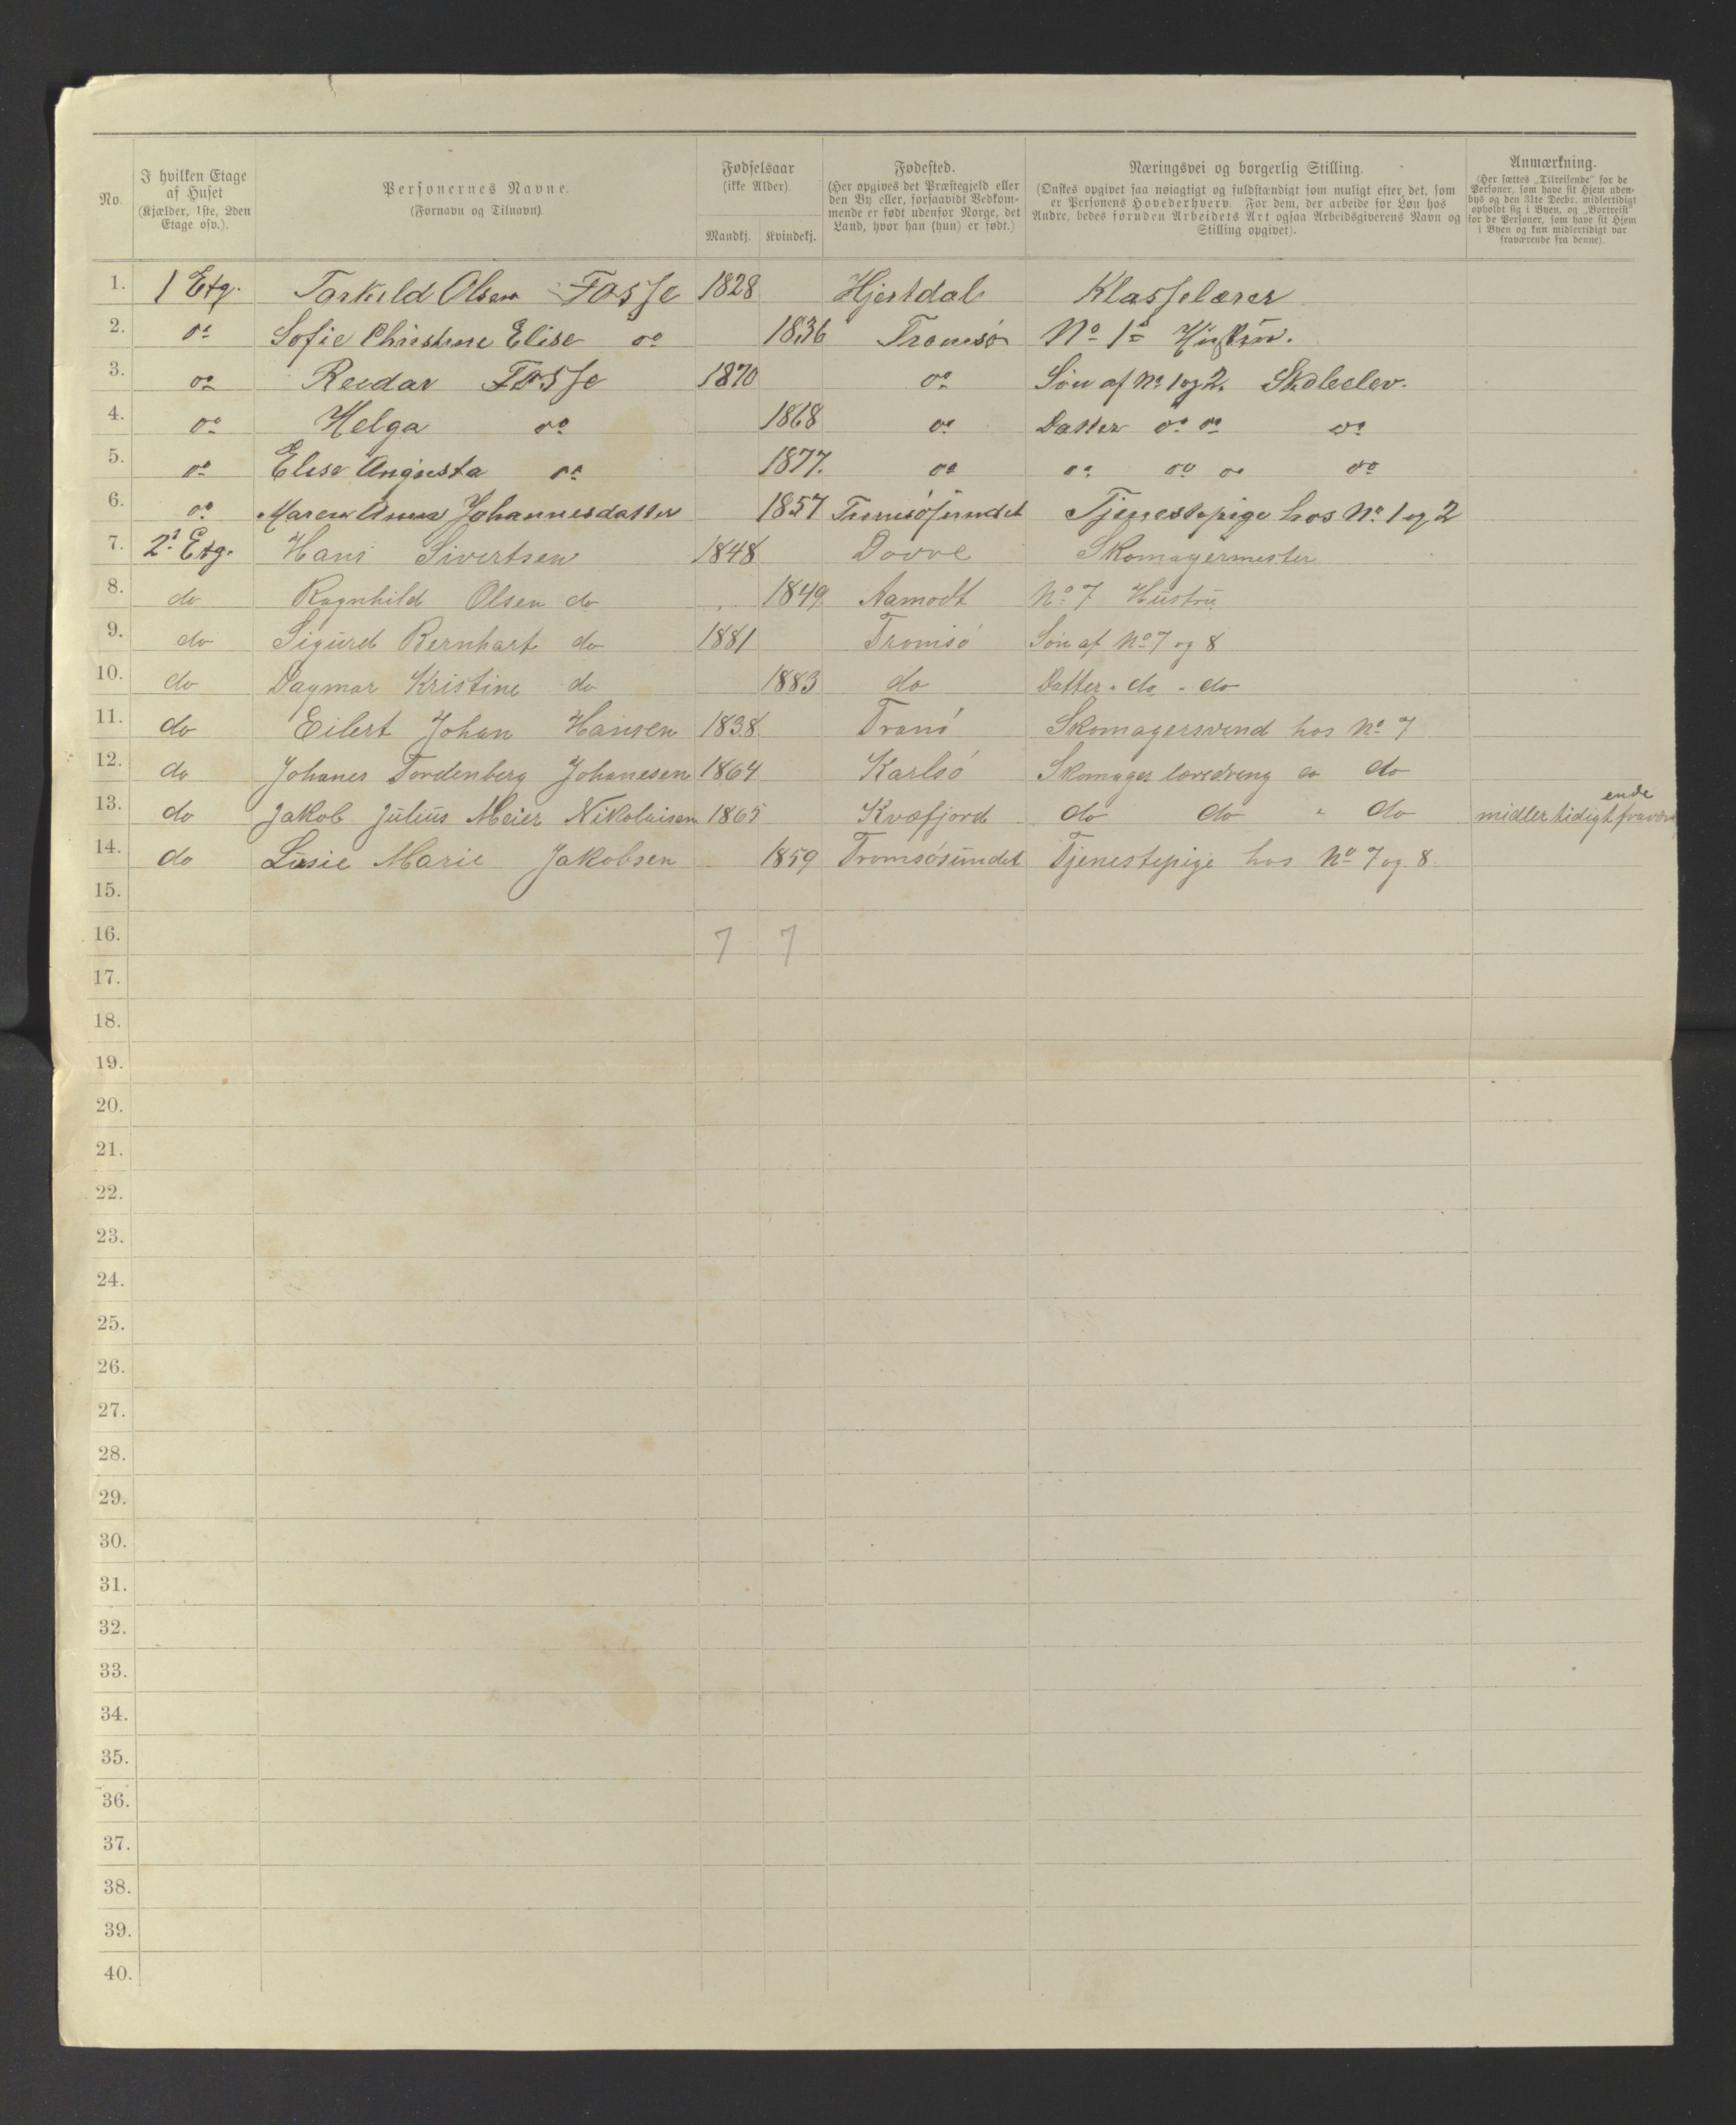 No.
I hvilken Etage
af Huset
(Kjælder, 1ste, 2den
Etage osv.).
Personernes Navne.
(Fornavn og Tilnavn).
Fødselsaar
(ikke Alder).
Mandkj. Kvindekj.
Fødested.
(Her opgives det Præstegjeld eller
den By eller, forsaavidt Vedkom-
mende er født udenfor Norge, det
Land, hvor han (hun) er født.)
Næringsvei og borgerlig Stilling.
(Ønskes opgivet saa nøiagtigt og fuldstændigt som muligt efter det, som
er Personens Hovederhverv. For dem, der arbeide for Løn hos
Andre, bedes foruden Arbeidets Art ogsaa Arbeidsgiverens Navn og
Stilling opgivet).
Anmærkning.
(Her sættes „Tilreisende“ for de
Personer, som have sit Hjem uden-
bys og den 31te Decbr. midlertidigt
opholdt sig i Byen, og „Bortreist“
for de Personer, som have sit Hjem
i Byen og kun midlertidigt var
fraværende fra denne).
1. 1 Etg. Torkild Olsen Fosse 1828 Hjertdal Klasselærer
2. do Sofie Christine Elise do 1836 Tromsø No 1s Hustru.
3. do Reidar Fosse 1870 do Søn af No 1 og 2. Skoleelev.
4. do Helga do 1868 do Datter do do do
5. do Elise Augusta do 1877. do do do do do
6. do Maren Anna Johannesdatter 1857 Tromsøsundet Tjenestepige hos No 1 og 2
7. 2. Etg. Hans Sivertsen 1848 Dovre Skomagermester
8. do Ragnhild Olsen do 1849. Aamodt No 7 Hustru
9. do Sigurd Bernhart do 1881 Tromsø Søn af No 7 og 8
10. do Dagmar Kristine do 1883 do Datter " do " do
11. do Eilert Johan Hansen 1838 Tranø Skomagersvend hos No 7
12. do Johanes Tordenberg Johanesen 1864 Karlsø Skomager læredreng do do
13. do Jakob Julius Meier Nikolaisen 1865 Kvæfjord do do " do midlertidigt fraværende
14. do Lusie Marie Jakobsen 1859 Tromsøsundet Tjenestepige hos No 7 og 8
15.
16. 7 7
17.
18.
19.
20.
21.
22.
23.
24.
25.
26.
27.
28.
29.
30.
31.
32.
33.
34.
35.
36.
37.
38.
39.
40.